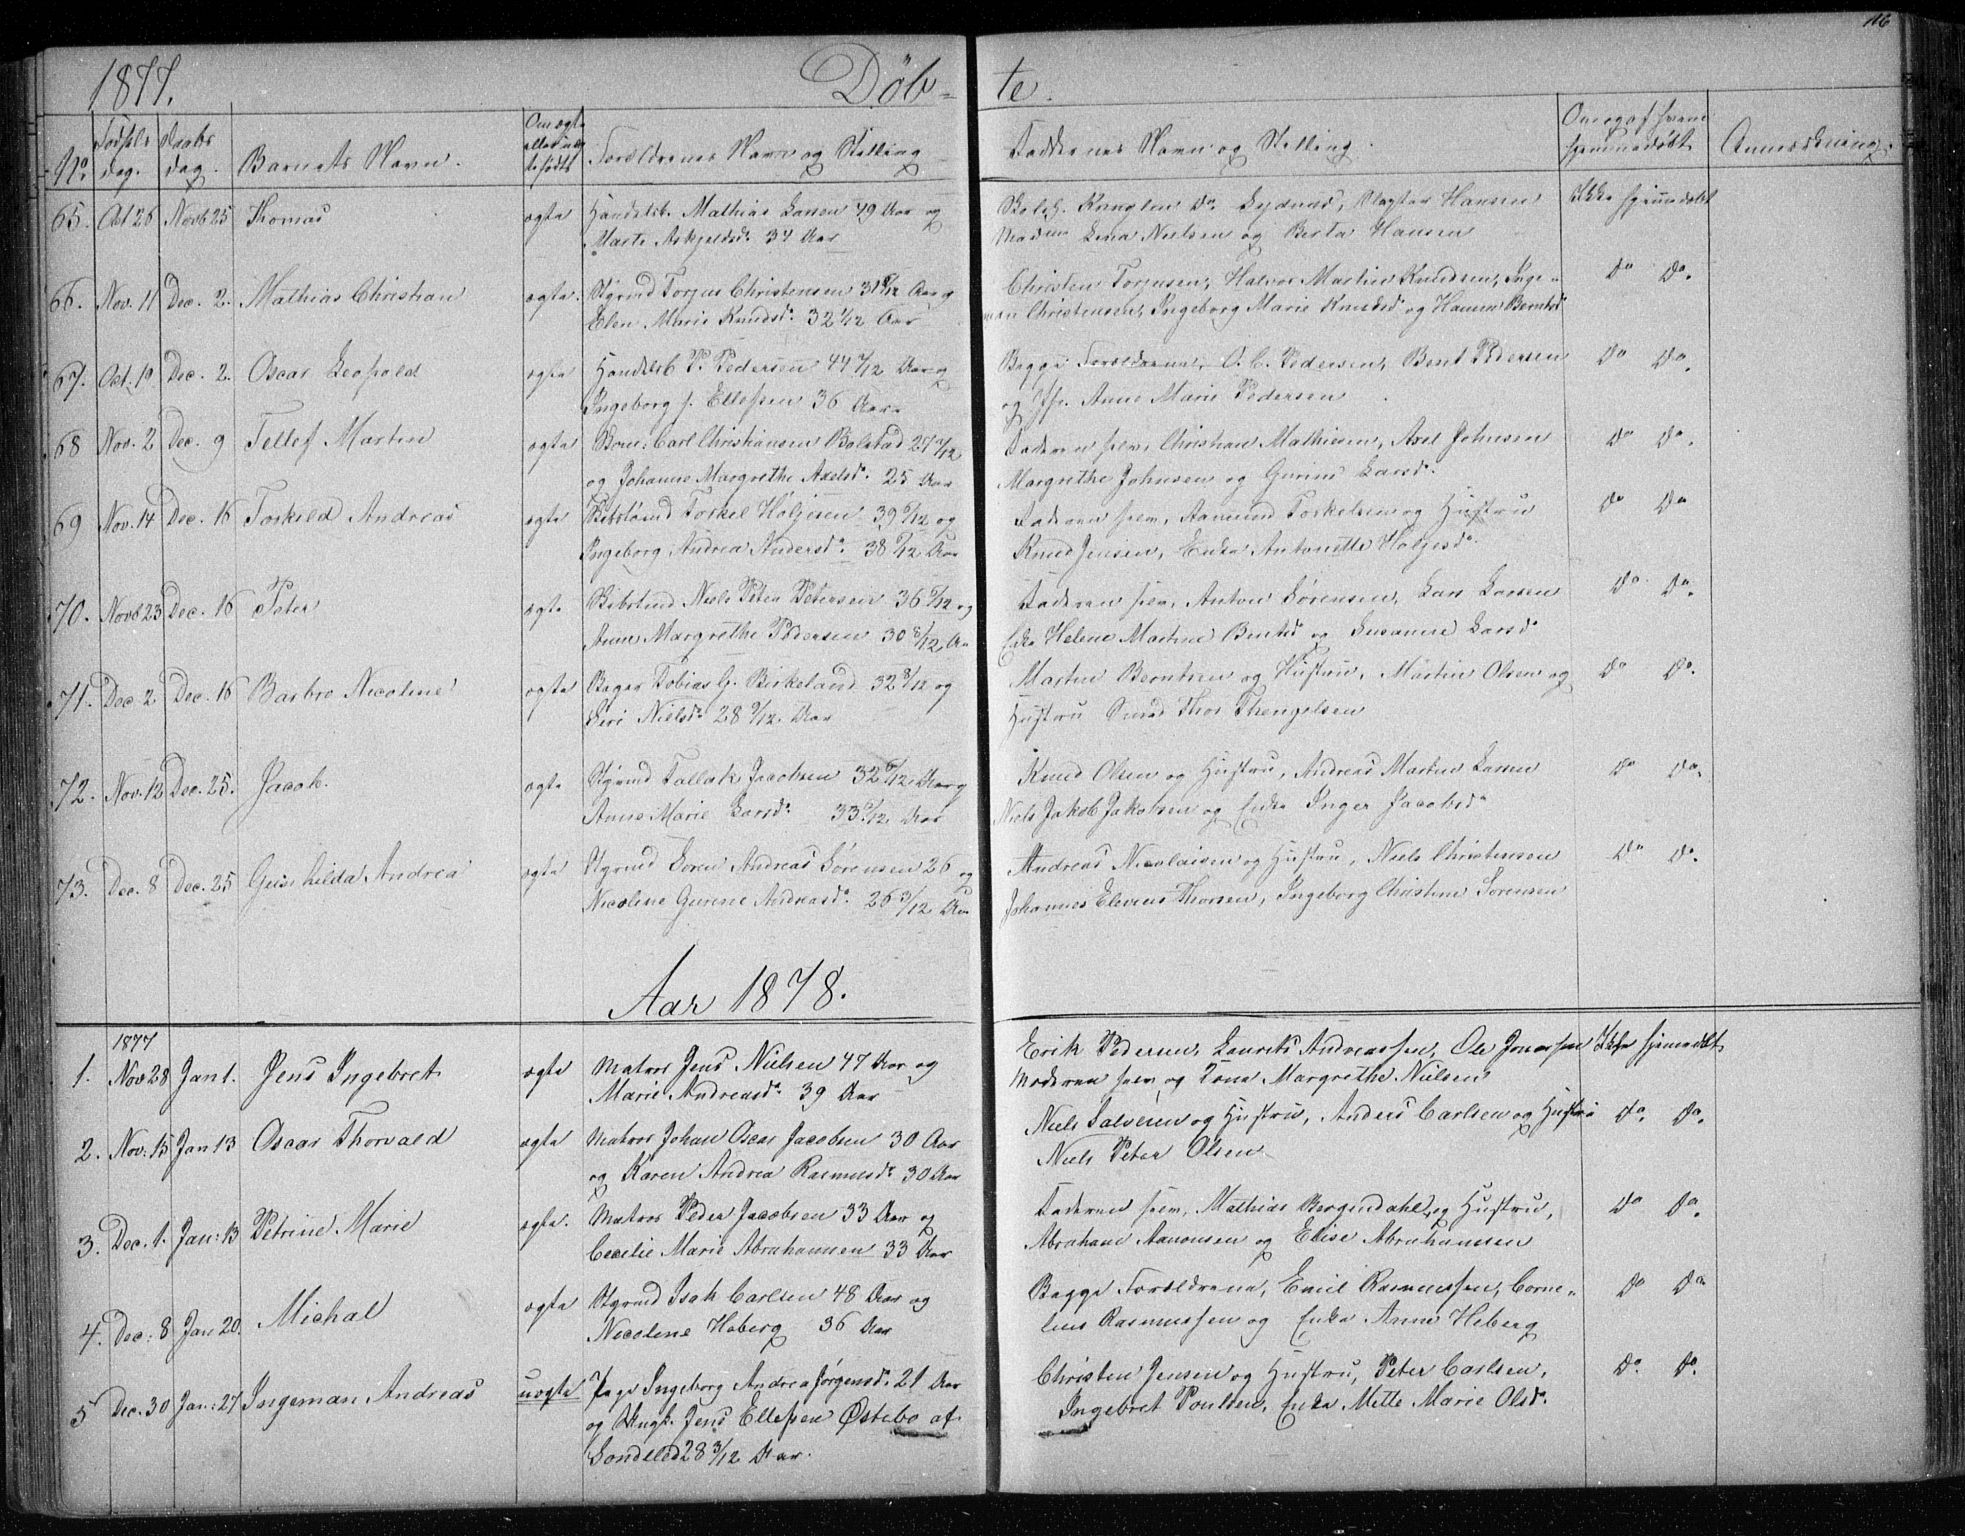 116
1877. Døb- te.
No Fødsels dag. Daabs dag. Barnets Navn. Om ægte eller uægte fødte Forældrenes Navn og Stilling Faddernes Navn og Stilling. Om og af hvem hjemmedøbt Anmærkning.
65. Oct 26 Novb 25 Thomas ægte Handelsb. Mathias Larsen 49 Aar og Hansen Ikke hjemmedøbt
Marte Askjeldsd. 34 Aar Mad Lena Nielsen og Berta Hansen
66. Nov. 11 Dec. 2. Mathias Christian ægte. Styrmd Torjus Christensen Aar og Christen Torjusen, Halvor Martin Knudsen, Inge- Do Do.
Elen Marie Knudsd. 32 1/12 Aar man Christensen, Ingeborg Marie Knudsd og Hanna Berntsd
67. Oct. 19 Dec. 2. Oscar Leopold ægte Handelsb P. Pedersen 44 7/12 Aar og Begge Forældrene, O. C. Pedersen, Bent Pedersen Do Do.
Ingeborg f. Ellefsen 36 Aar og Jfr. Anne Marie Pedersen
68 Nov. 2 Dec. 9 Tellef Martin ægte Carl Christiansen Bolstad 27 7/12 Faderen selv, Christian Mathiesen, Axel Johnsen Do Do.
og Johanne Margrethe Axelsd. 25 Aar Margrethe Johnsen og Gurine Larsd.
69 Nov. 14 Dec. 16 Torkild Andreas ægte Torkel Høljesen 39 6/12 og Faderen selv, Aamund Torkelsen og Hustru Do Do
Ingeborg Andrea Andersd. 38 9/12 Aar Knud Jensen, Enke Antonette Holjesd.
70. Novb 23 Dec. 16 Peter ægte Niels Peter Petersen 36 9/12 og Faderen selv, Anton Sørensen, Lars Larsen Do Do.
Anne Margrethe Pedersen 30 8/12 Aar Enke Helene Martine Bentsd og Susanne Larsd.
71. Dec 2 Dec. 16 Barbro Nicoline ægte Bager Tobias G. Birkeland 32 8/12 og Martin Berntsen og Hustru, Martin Olsen og Do Do.
Siri Nielsd. 28 9/12. Aar Hustru Smed Thor Thengelsen
72. Nov. 12 Dec. 25. Jacob. ægte Styrmd Tallak Jacobsen 32 6/12 Aar og Knud Olsen og Hustru, Andreas Martin Larsen Do Do.
Anne Marie Larsd. 33 9/12 Aar Niels Jakob Jakobsen og Enke Inger Jacobsd.
73. Dec. 8 Dec. 25 Gunhilda Andrea ægte Styrmd Soren Andreas Sørensen 26 og Andreas Nicolaisen og Hustru, Niels Christensen Do Do.
Nicoline Gurine Andreasd. 26 3/12 Aar Johannes Elevius Thorsen, Ingeborg Christine Sørensen
Aar 1878.
1877
1. Nov 28 Jan 1. Jens Ingebret ægte Matros Jens Nielsen 47 Aar og Erik Pedersen, Laurits Andreassen, Ole Jonassen Ikke hjemmedøbt
Marie Andreasd. 39 Aar Moderen selv og Kone Margrethe Nielsen
2. Nov: 15 Jan 13 Oscar Thorvald ægte Matros Johan Oscar Jacobsen 30 Aar Niels Salvesen og Hustru, Anders Carlsen og Hustru Do. Do.
og Karen Andrea Rasmusd. 30 Aar Niels Peter Olsen
3. Dec. 1. Jan: 13 Petrine Marie ægte. Matros Peder Jacobsen 33 Aar og Faderen selv, Mathias Bergendahl og Hustru, Do Do.
Cecilie Marie Abrahamsen 33 Aar Abraham Aanonsen og Elise Abrahamsen
4. Dec: 8 Jan 20. Michal ægte Styrmd Isak Carlsen 48 Aar og Begge Forældrene, Emil Rasmussen, Corne- Do Do
Nicoline Heberg 36 Aar lius Rasmussen og Enke Anne Heberg
5 Dec. 30 Jan: 27 Ingeman Andreas uægte Pige Ingeborg Andrea Jørgensd. 21 Aar Christen Jensen og Hustru, Peter Carlsen, Do. Do.
og Ungk. Jens Ellefsen Østebø af Ingebret Poulsen, Enke Mette Marie Olsd.
Søndeled 28 3/12 Aar.